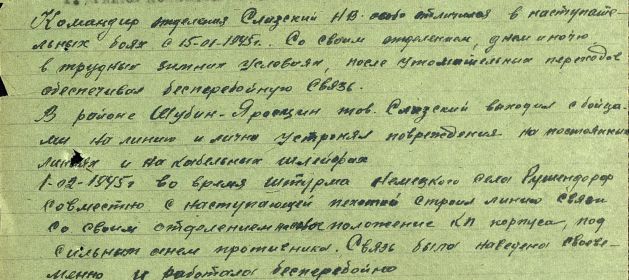 Командир отделения Слазский Н.В. особо отличился в наступате-
льных боях с 15-01-1945г. Со своим отделением, днем и ночью
в трудных зимних условиях, после утомительных переходов
обеспечивал бесперебойную связь.
В районе Шубин-Яроцин тов. Слазский выходил с бойца-
ми на линию и лично устронял повреждения на постоянных
линиях и на кабельных шлейфах
1-02-1945г во время штурма немецкого села Рушендорф
совместно с наступающей пехотой строил линию связи
со своим отделением положение КП корпуса, под
сильным огнем противника. Связь была наведена свое-
менно и работала бесперебойно